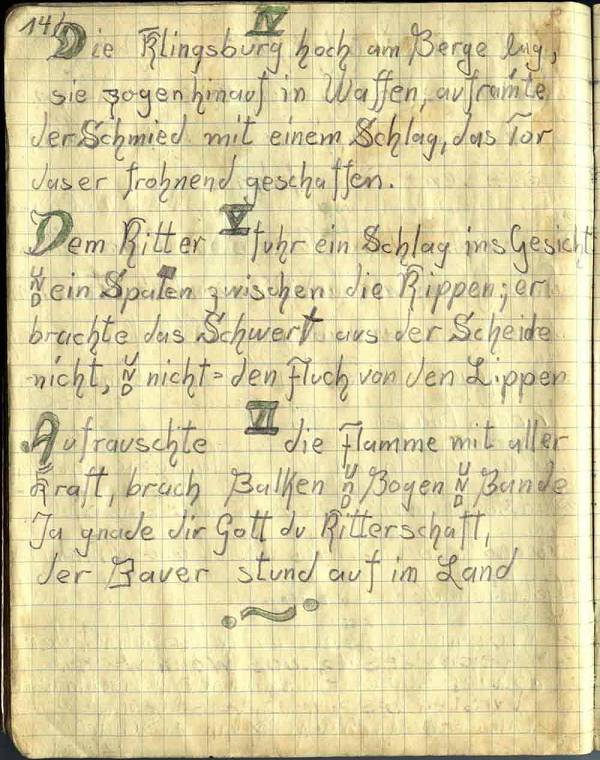 14/
IV
Die Klingsburg hoch am Berge lag,
sie zogen hinauf in Waffen, auframte
der Schmied mit einem Schlag, das Tor
das er frohnend geschaffen.
V
Dem Ritter fuhr ein Schlag ins Gesicht
UND ein Spaten zwischen die Rippen; er
brachte das Schwert aus der Scheide
nicht, UND nicht= den Fluch von den Lippen
VI
Aufrauschte die Flamme mit aller
Kraft, brach Balken UND Bogen UND Bande
Ja gnade dir Gott du Ritterschaft,
der Bauer stund auf im Land